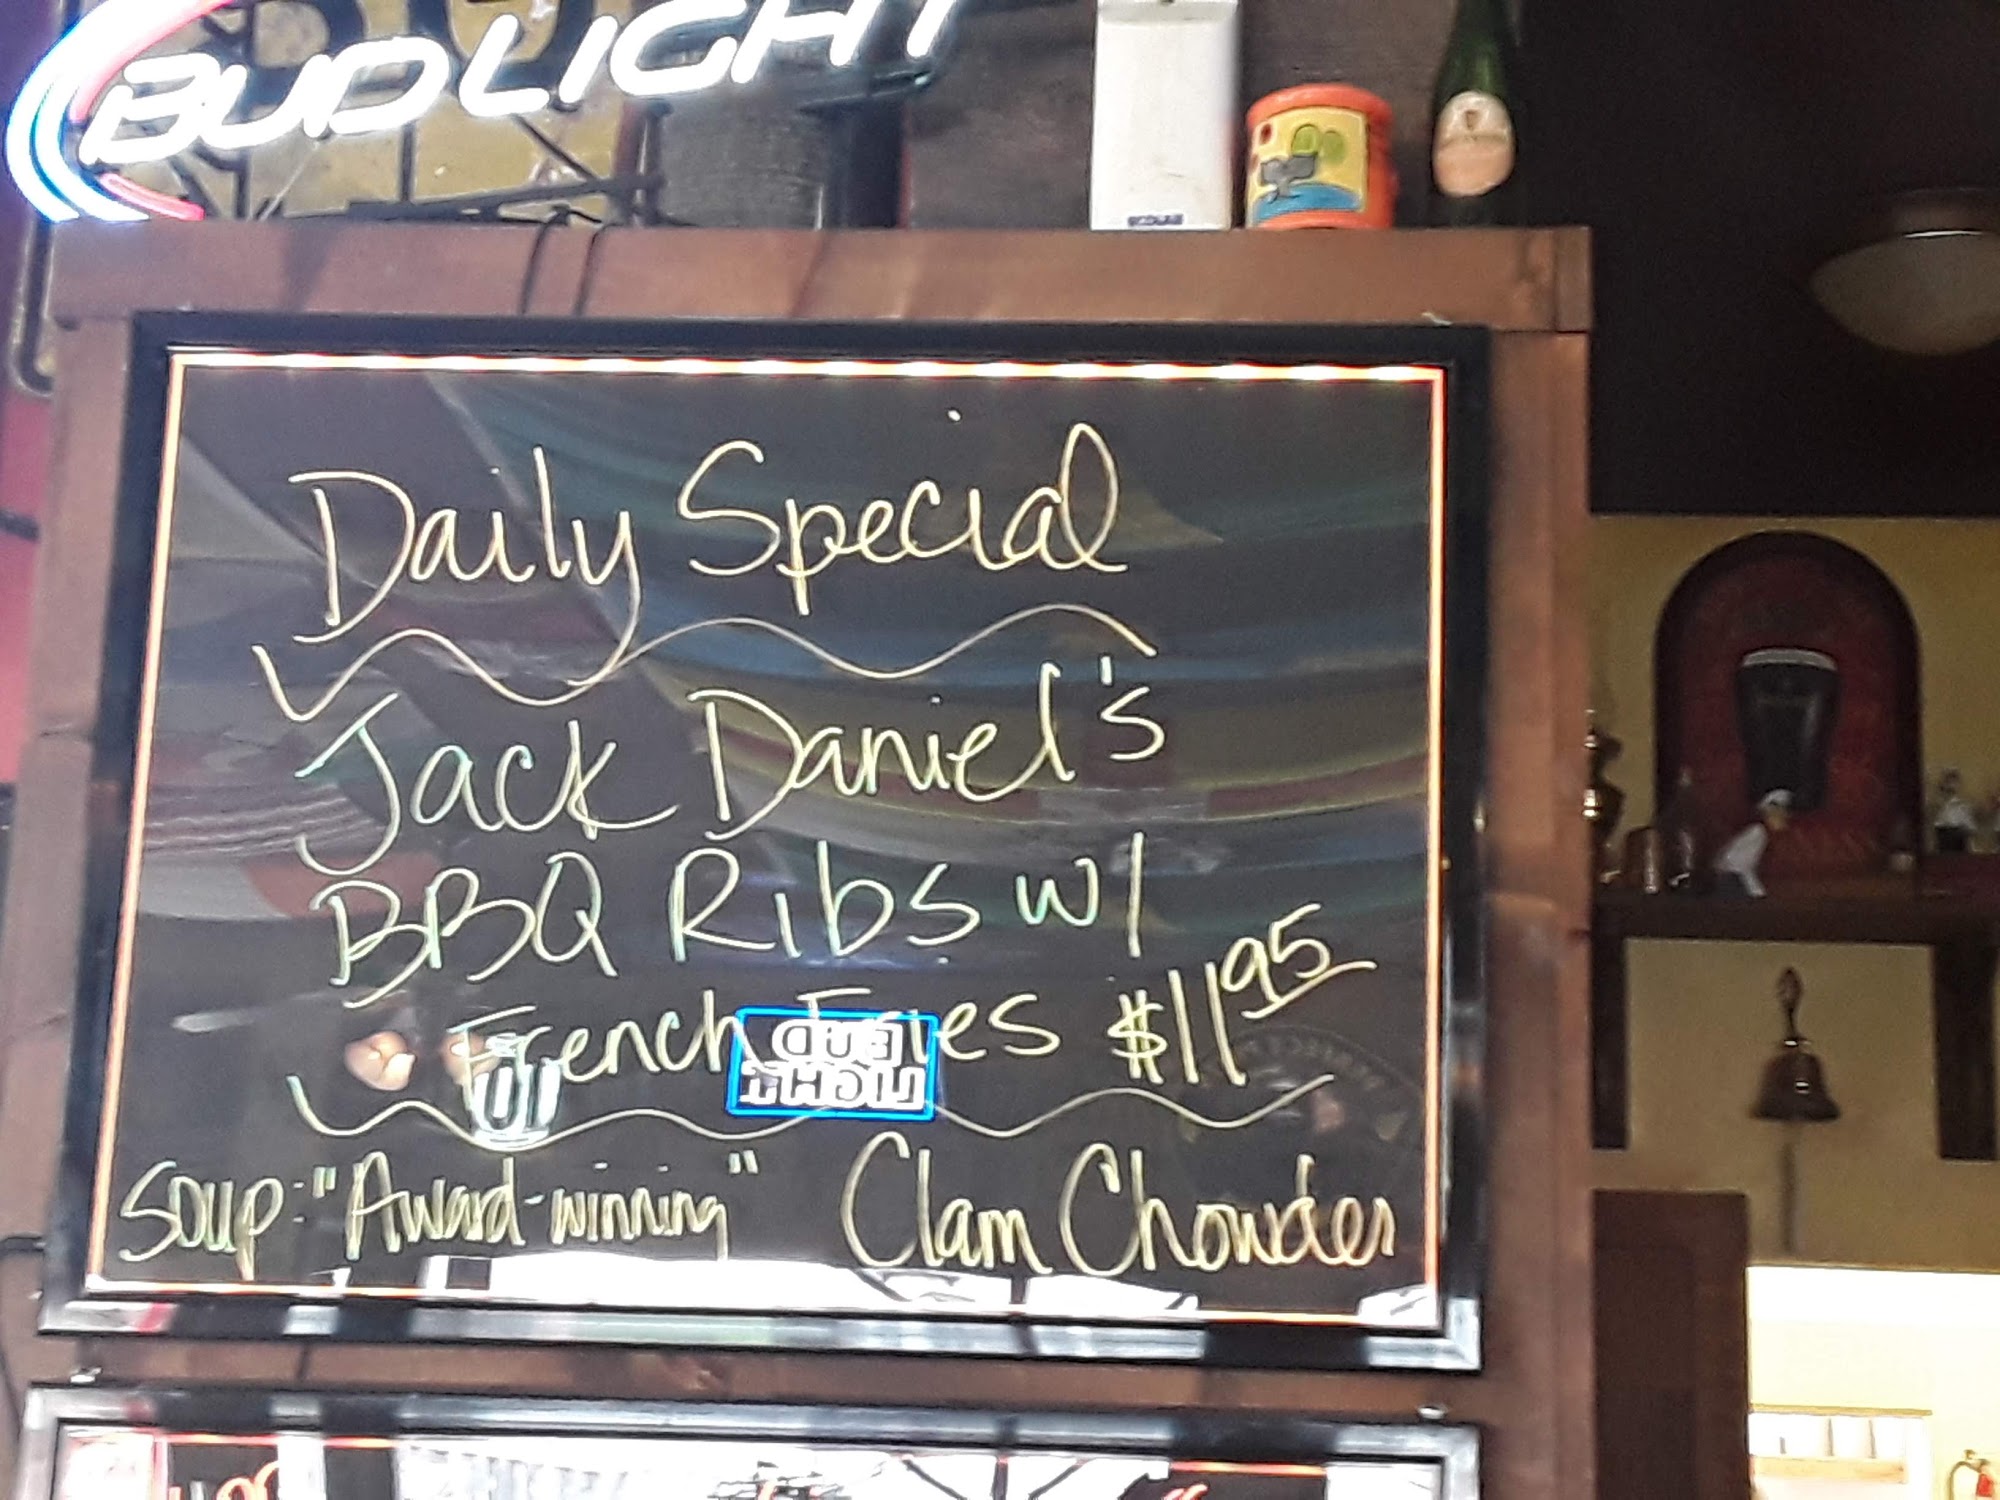 BUD LIGHT
Daily Special
Jack Daniel's
BBQ Ribs w/
French Fries $11.95
BUD
LIGHT
Soup: "Award-winning" Clam Chowder